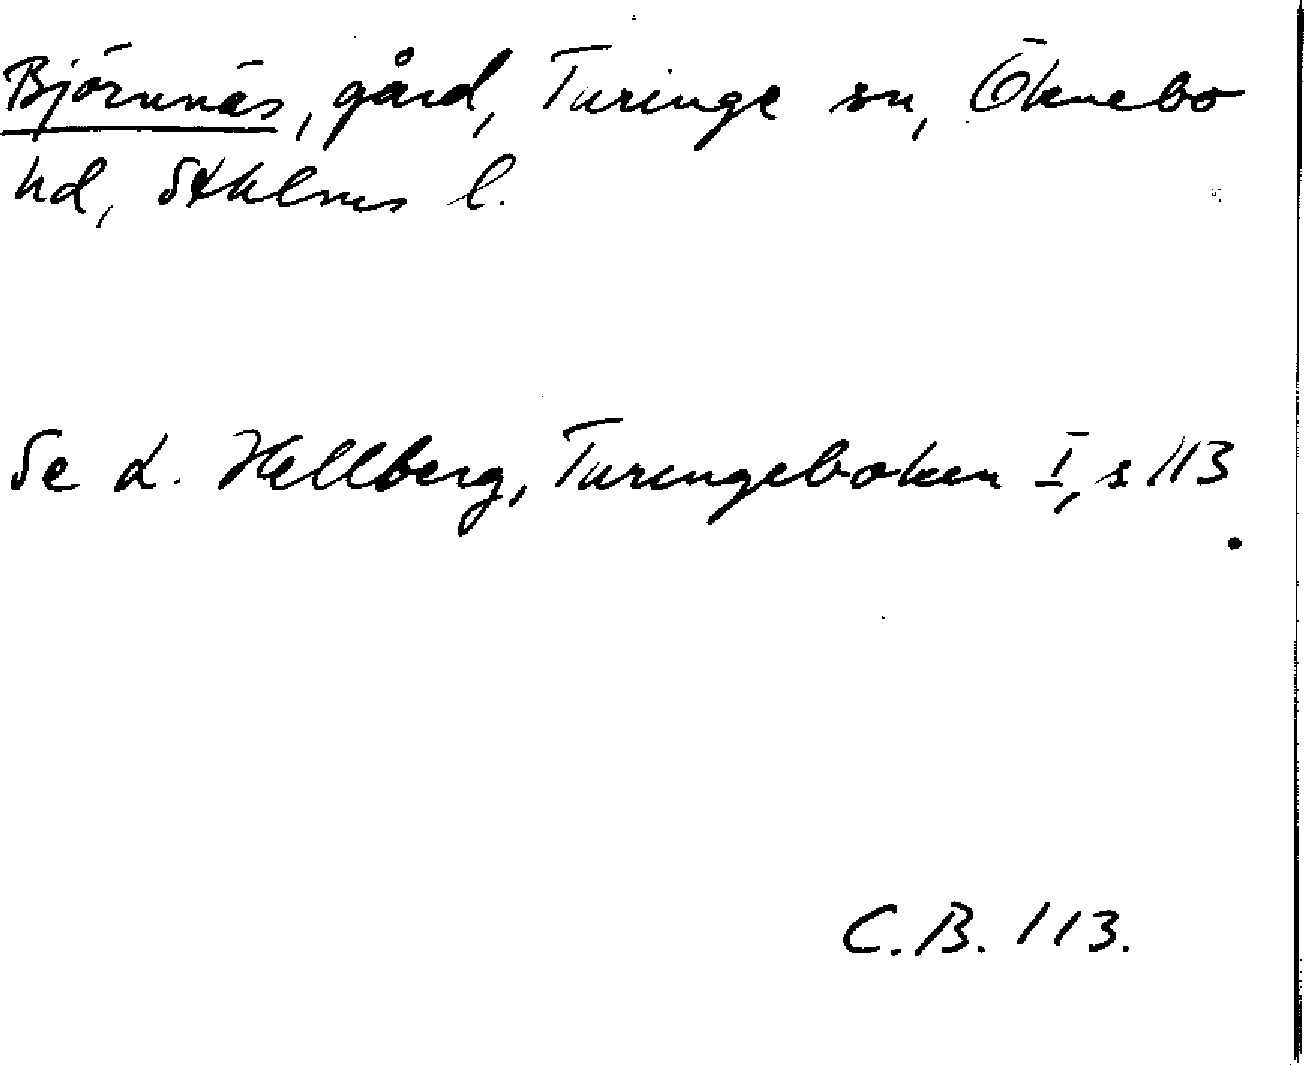 Björnnäs, gård, Turinge sn, Öknebo
hd, Sthlms l.
Se L. Hellberg, Turingeboken I, s 113
.
C.B. 113.